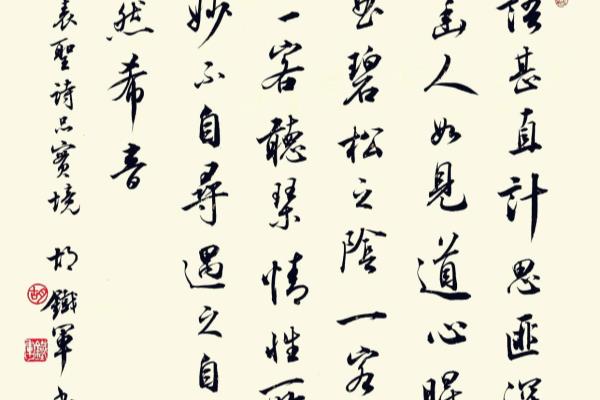 語甚直計思匪深
幽人如見道心晴
曲碧松之陰一客
一客聽琴情性所
妙不自尋遇之自
然希音
表聖詩品實境 胡鐵軍